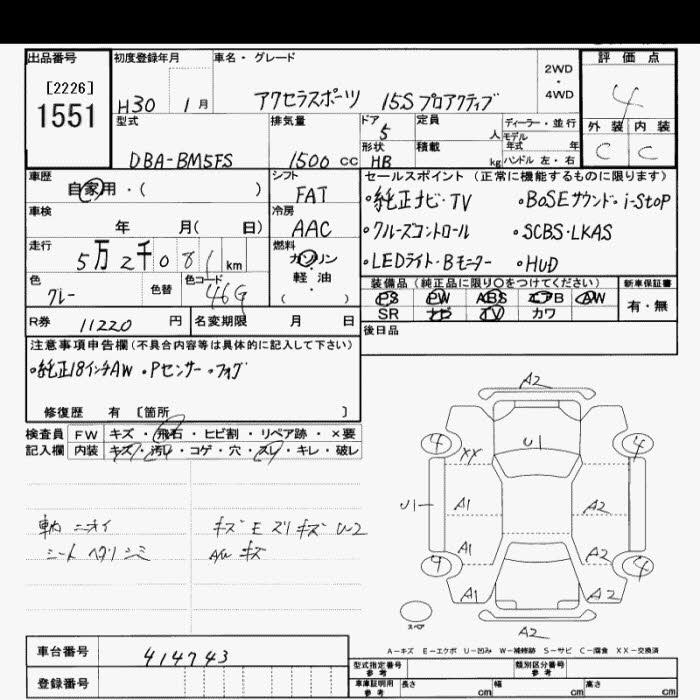 出品番号 初度登録年月 車名・グレード 2WD・4WD 評価点
[2226]
1551
H30 1月 アクセラスポーツ 15S プロアクティブ 4
型式 排気量 ドア 5 定員 人 ディーラー・並行 外装 内装
モデル年式 年
DBA-BM5FS 1500 cc 形状 HB 積載 kg ハンドル 左・右 C C
車歴 シフト セールスポイント(正常に機能するものに限ります)
自家用・( ) FAT ・純正ナビ・TV ・BoSEサウンド・i-StoP
車検 冷房 ・クルーズコントロール ・SCBS・LKAS
年 月( 日) AAC ・LEDライト・Bモニター ・HUD
走行 燃料
5万2千081km ガソリン
軽・油
( )
色 グレー 色替 色コード 46G
装備品(純正品に限り○をつけてください) 新車保証書
PS PW ABS エアB AW 有・無
SR ナビ TV カワ
R券 11220 円 名変期限 月 日 後日品
注意事項申告欄(不具合内容等は具体的に記入して下さい)
・純正18インチAW ・Pセンサー ・フォグ
修復歴 有 [箇所 ]
検査員 FW キズ・飛石・ヒビ割・リペア跡・×要
記入欄 内装 キズ・汚レ・コゲ・穴・スレ・キレ・破レ
車内 ニオイ
シート ヘタリ シミ
AW キズ
A2
4 U1 4
XX
U1 A1 A2
A1 A2
4 4
A1 A2
スペア
A2
A-キズ E-エクボ U-凹み W-補修跡 S-サビ C-腐食 XX-交換済
車台番号 414743 型式指定番号 参考 類別区分番号 参考
登録番号 車庫証明用 参考 長さ cm 幅 cm 高さ cm